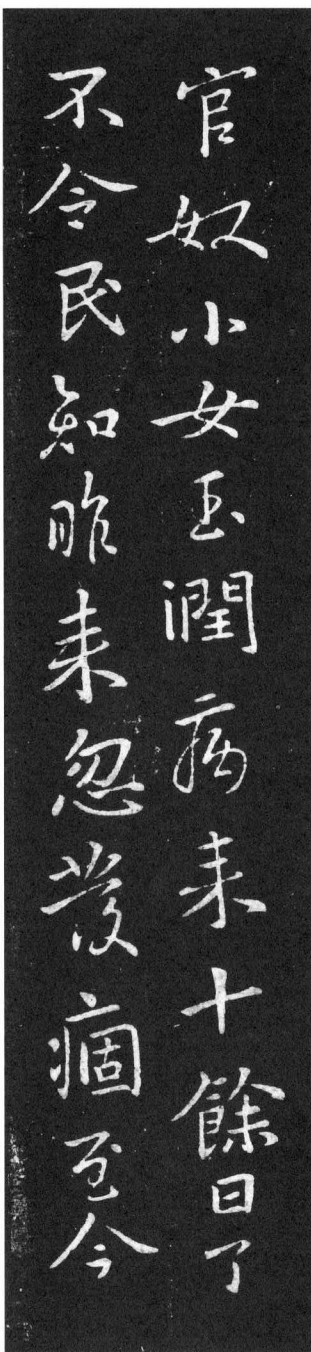 官奴小女玉潤病來十餘日了
不令民知昨來忽發痼至今